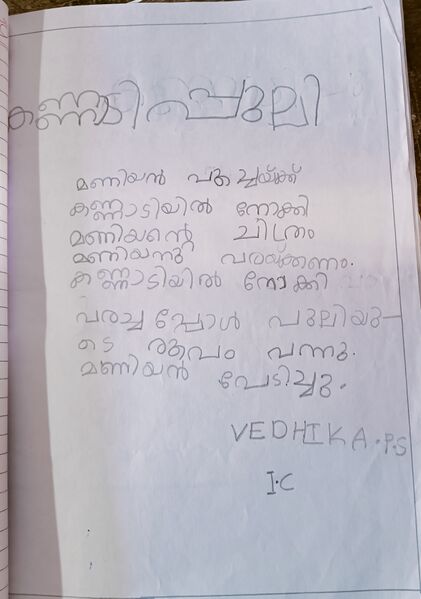 കണ്ണാടി പുലി
മണിയൻ പൂച്ചയ്ക്ക്
കണ്ണാടിയിൽ നോക്കി
മണിയന്റെ ചിത്രം
മണിയനു വരയ്ക്കണം.
കണ്ണാടിയിൽ നോക്കി
വരച്ചപ്പോൾ പുലിയു-
ടെ രൂപം വന്നു.
മണിയൻ പേടിച്ചു.
VEDHIKA.P.S
I.C